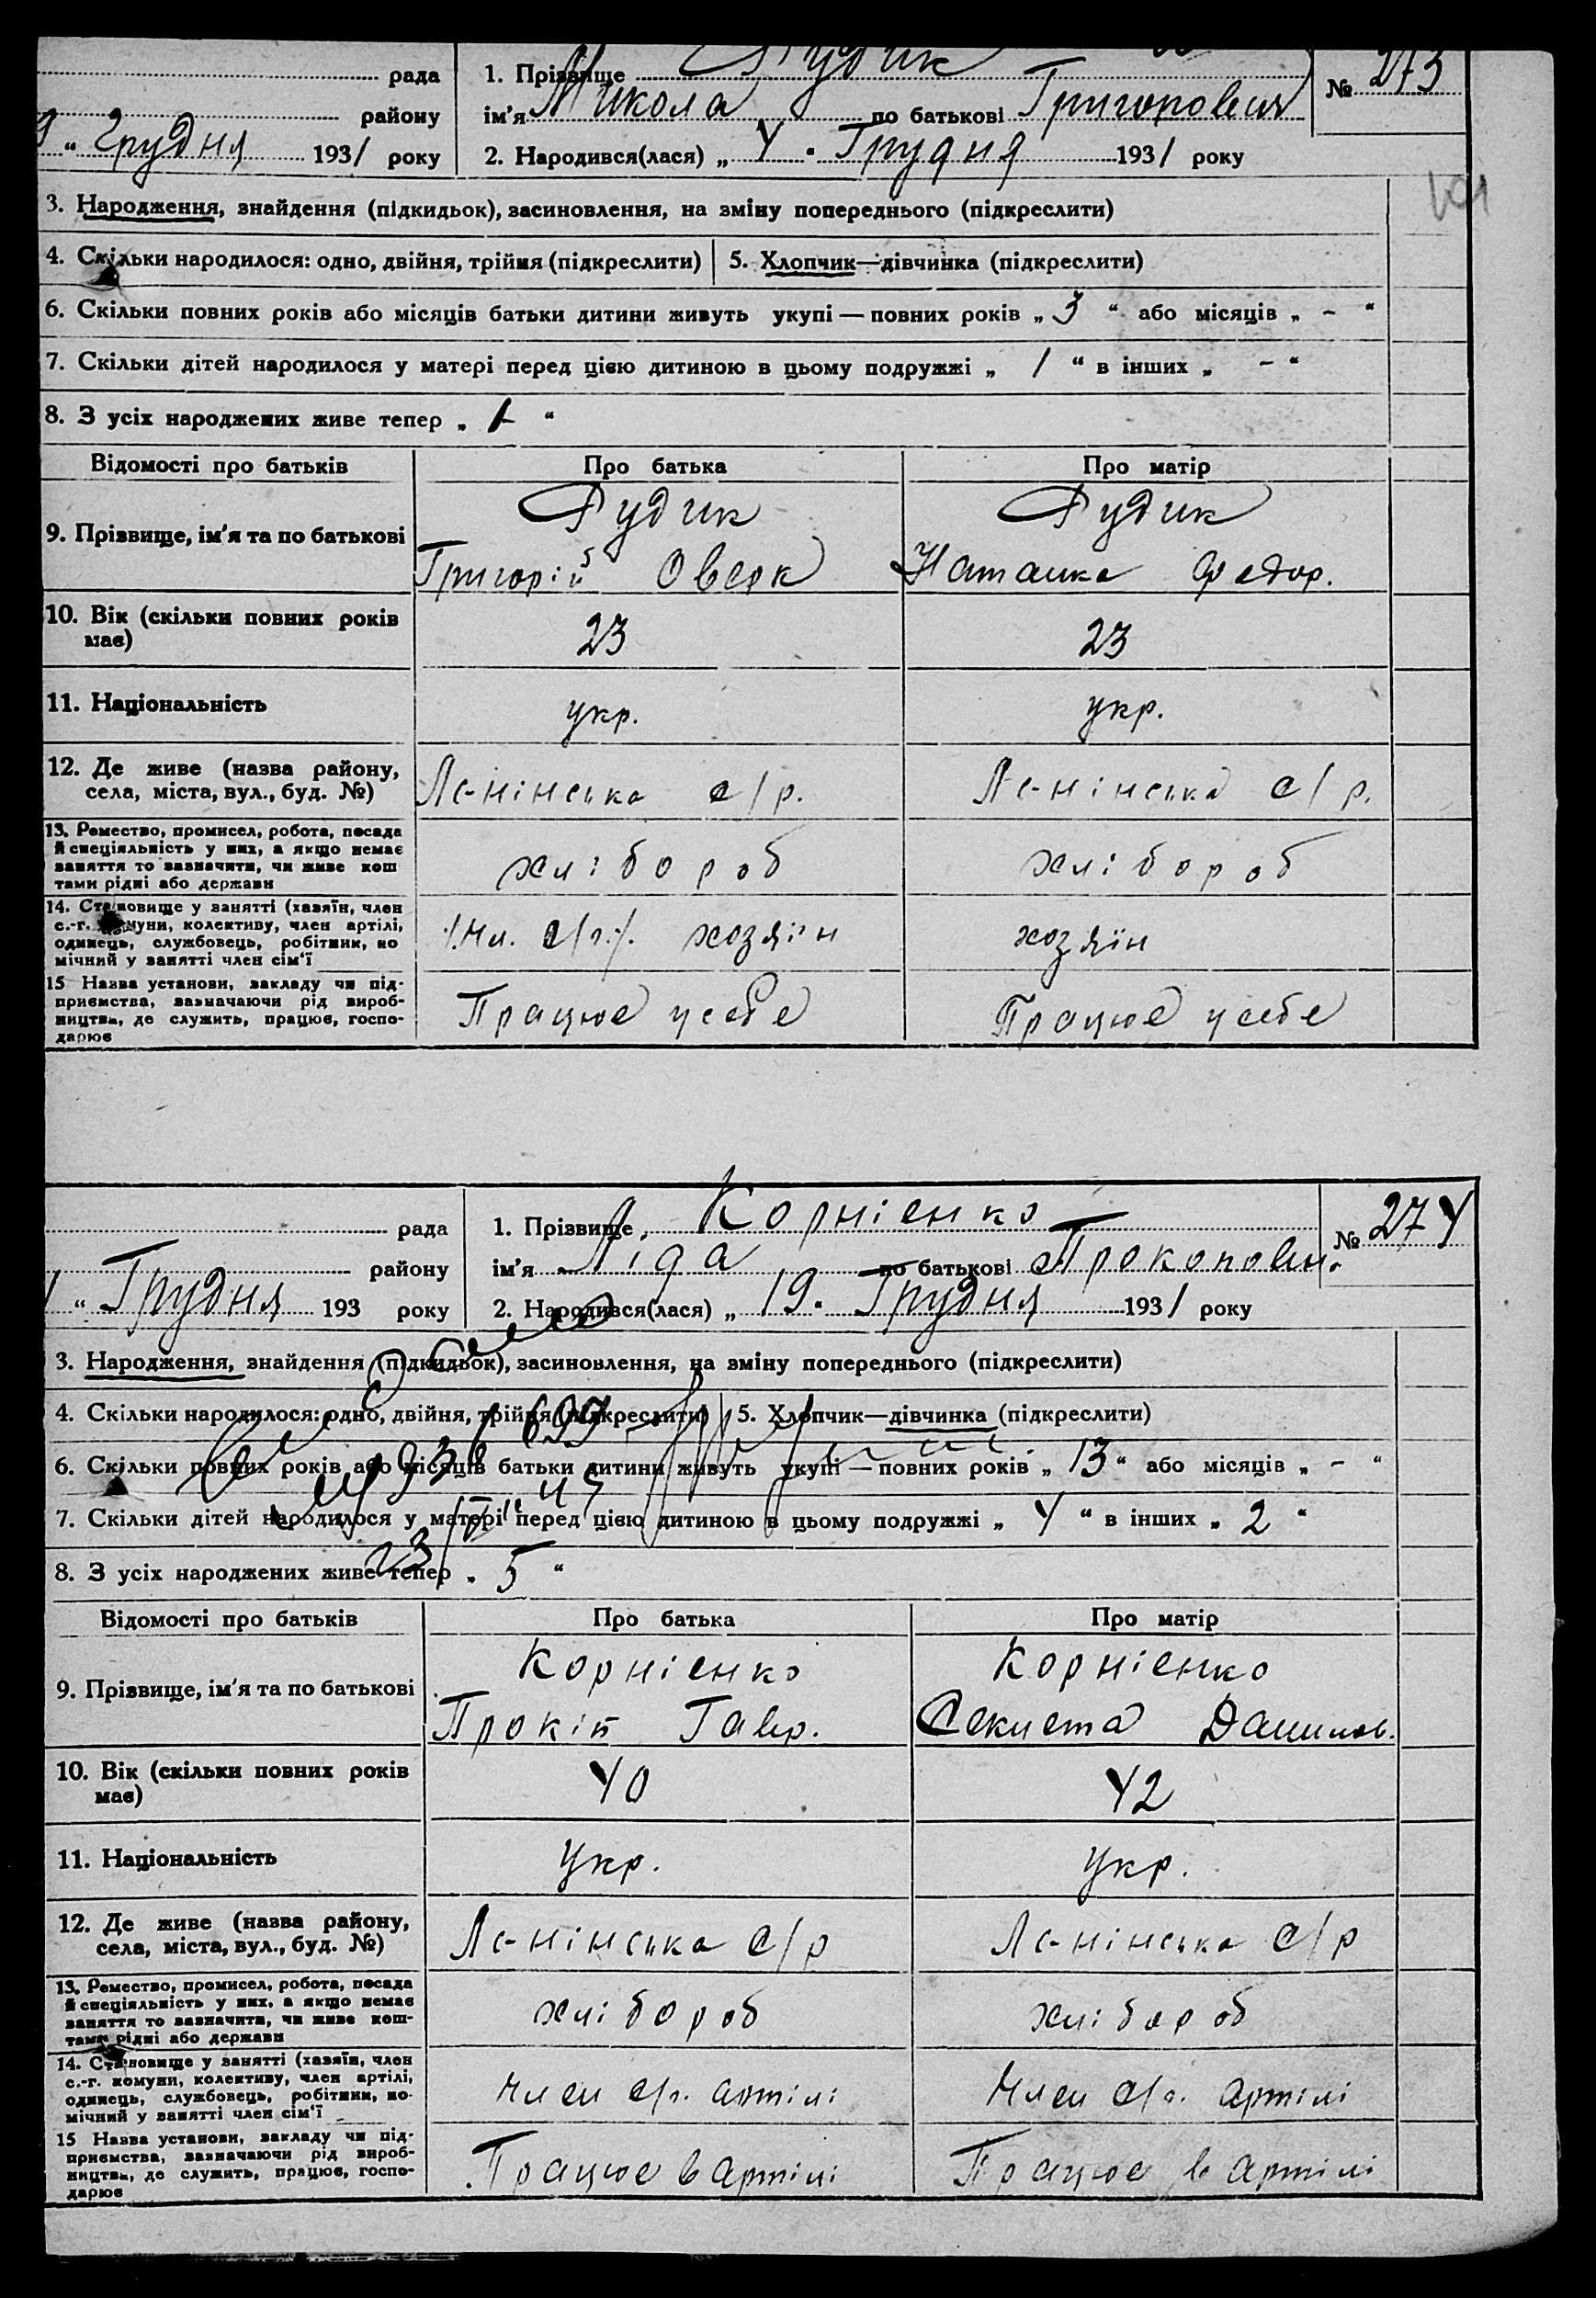 рада
1. Прізвище Рудик
№ 273
району
ім'я Микола по батькові Григорович
" Грудня 1931 року
2. Народився(лася) „ 4 " Грудня 1931 року
3. Народження, знайдення (підкидьок), засиновлення, на зміну попереднього (підкреслити)
4. Скільки народилося: одно, двійня, трійня (підкреслити)
5. Хлопчик—дівчинка (підкреслити)
6. Скільки повних років або місяців батьки дитини живуть укупі — повних років „ 3 " або місяців „ - "
7. Скільки дітей народилося у матері перед цією дитиною в цьому подружжі „ 1 " в інших „ - "
8. З усіх народжених живе тепер „ 1 "
Відомості про батьків
Про батька
Про матір
9. Прізвище, ім'я та по батькові
Рудик
Григорій Оверк
Рудик
Наталка Федор.
10. Вік (скільки повних років
має)
23
23
11. Національність
укр.
укр.
12. Де живе (назва району,
села, міста, вул., буд. №)
Ленінська с/р.
Ленінська с/р.
13. Ремество, промисел, робота, посада
й спеціяльність у них, а якщо немає
заняття то зазначити, чи живе кош
тами рідні або держави
хлібороб
хлібороб
14. Становище у занятті (хазяїн, член
с.-г. комуни, колективу, член артілі,
одинець, службовець, робітник, по
мічний у занятті член сім'ї
хозяїн
хозяїн
15 Назва установи, закладу чи під-
приємства, зазначаючи рід вироб-
ництва, де служить, працює, госпо-
дарює
Працює у себе
Працює у себе
рада
1. Прізвище Корніенко
№ 274
району
ім'я Ліда по батькові Прокоповн.
" Грудня 193 року
2. Народився(лася) „ 19 " Грудня 1931 року
3. Народження, знайдення (підкидьок), засиновлення, на зміну попереднього (підкреслити)
4. Скільки народилося: одно, двійня, трійня (підкреслити)
5. Хлопчик—дівчинка (підкреслити)
6. Скільки повних років або місяців батьки дитини живуть укупі — повних років „ 13 " або місяців „ - "
7. Скільки дітей народилося у матері перед цією дитиною в цьому подружжі „ 4 " в інших „ 2 "
8. З усіх народжених живе тепер „ 5 "
Відомості про батьків
Про батька
Про матір
9. Прізвище, ім'я та по батькові
Корніенко
Прокіп Гавр.
Корніенко
Секлета Данилов.
10. Вік (скільки повних років
має)
40
42
11. Національність
укр.
укр.
12. Де живе (назва району,
села, міста, вул., буд. №)
Ленінська с/р
Ленінська с/р
13. Ремество, промисел, робота, посада
й спеціяльність у них, а якщо немає
заняття то зазначити, чи живе кош-
тами рідні або держави
хлібороб
хлібороб
14. Становище у занятті (хазяїн, член
с.-г. комуни, колективу, член артілі,
одинець, службовець, робітник, по-
мічний у занятті член сім'ї
член с/г. артілі
член с/г. артілі
15 Назва установи, закладу чи під-
приємства, зазначаючи рід вироб-
ництва, де служить, працює, госпо-
дарює
Працює в артілі
Працює в артілі